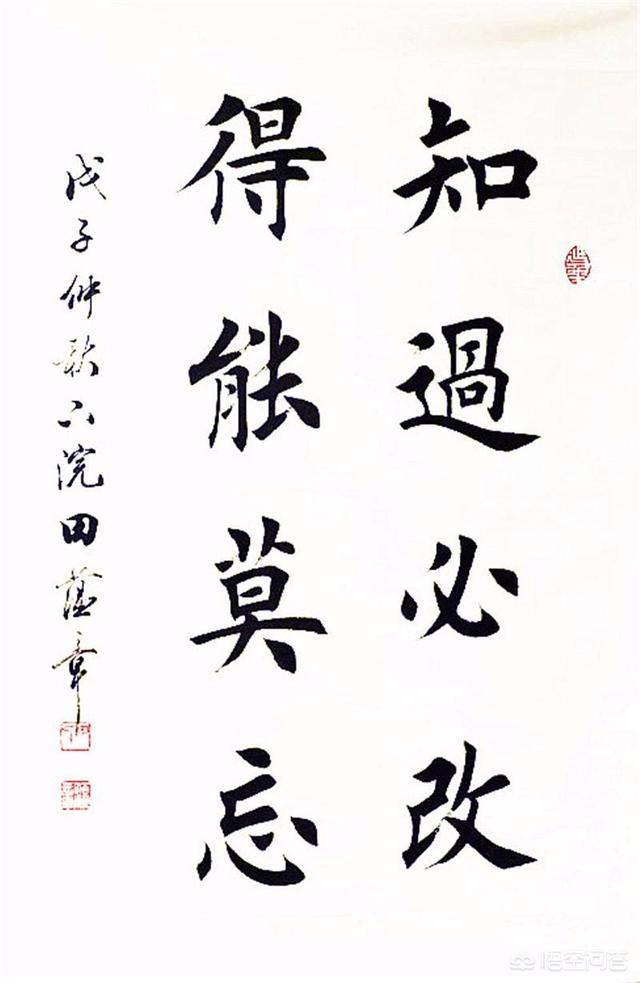 知過必改
得能莫忘
戊子仲秋六浣田蕴章
悟空问答